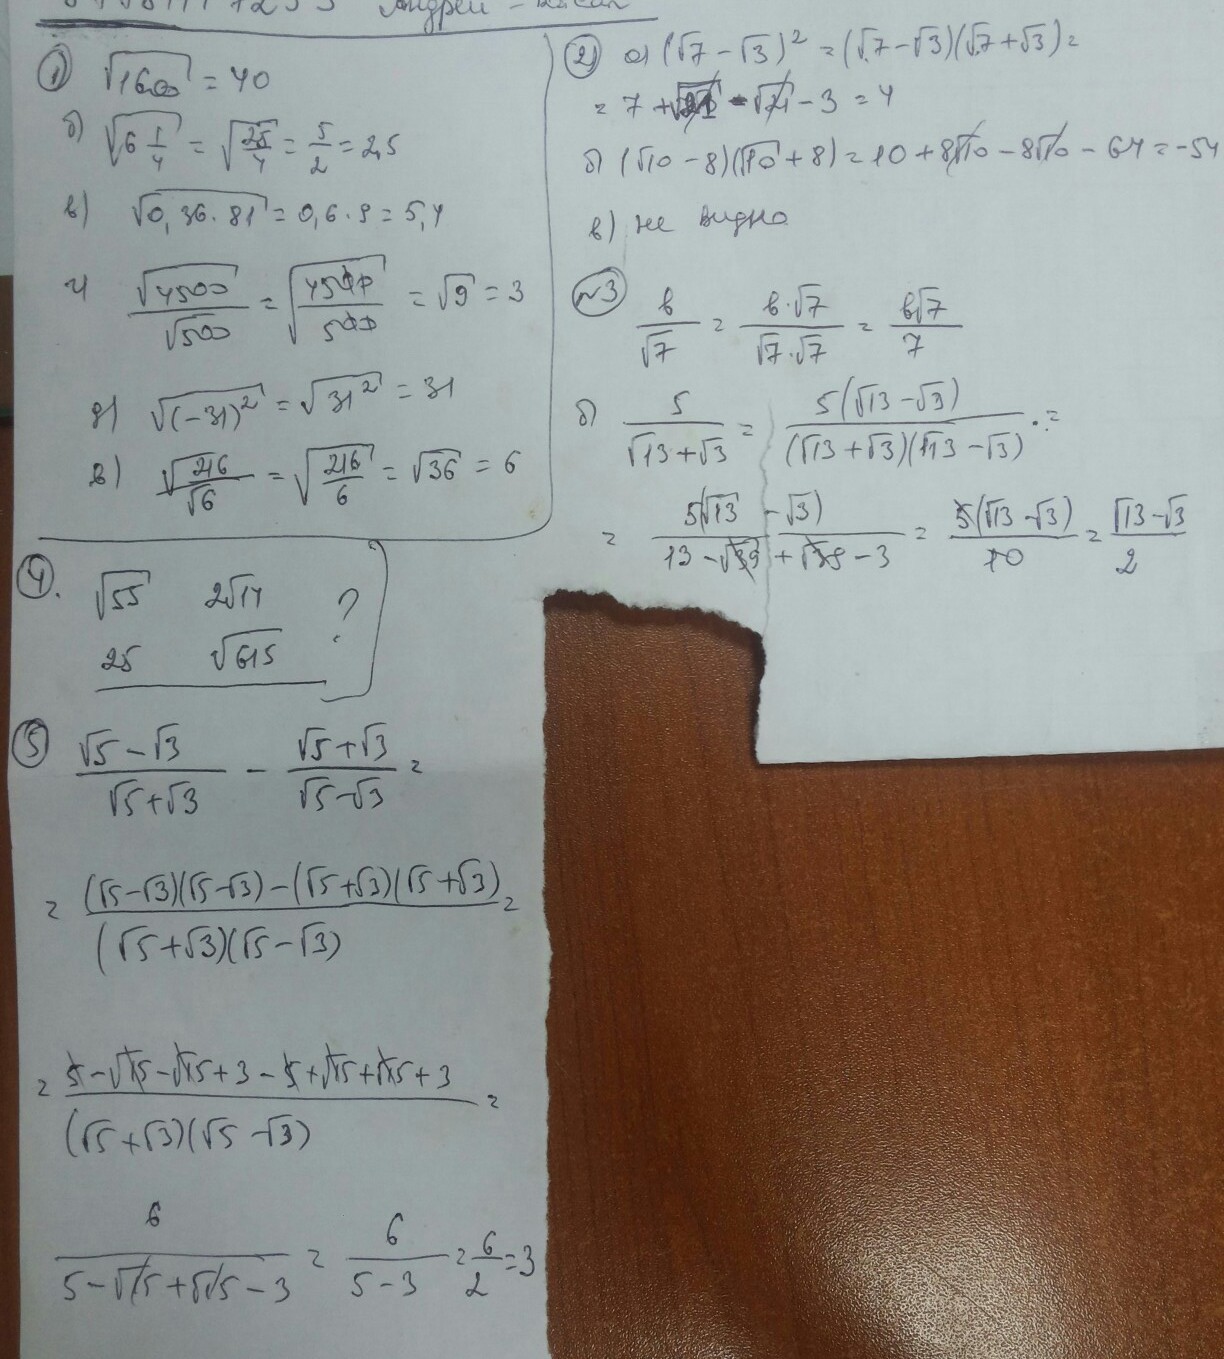 Андрей -
① √1600 = 40
б) √6 1/4 = √25/4 = 5/2 = 2,5
в) √0,36·81 = 0,6·9 = 5,4
г) √4500/√500 = √4500/500 = √9 = 3
д) √(-31)² = √31² = 31
е) √216/√6 = √216/6 = √36 = 6
② а) (√7 - √3)² = (√7 - √3)(√7 + √3) =
= 7 + √21 - √21 - 3 = 4
б) (√10 - 8)(√10 + 8) = 10 + 8√10 - 8√10 - 64 = -54
в) не видно
№3 6/√7 = 6·√7/√7·√7 = 6√7/7
б) 5/√13+√3 = 5(√13 - √3)/(√13 + √3)(√13 - √3) =
= 5(√13 - √3)/13 - √39 + √39 - 3 = 5(√13 - √3)/10 = √13 - √3/2
④. √55 2√14 ?
25 √615
⑤ √5 - √3/√5 + √3 - √5 + √3/√5 - √3 =
= (√5-√3)(√5-√3) - (√5+√3)(√5+√3)/(√5+√3)(√5-√3) =
= 5 - √15 - √15 + 3 - 5 + √15 + √15 + 3/(√5+√3)(√5-√3) =
6/5 - √15 + √15 - 3 = 6/5 - 3 = 6/2 = 3